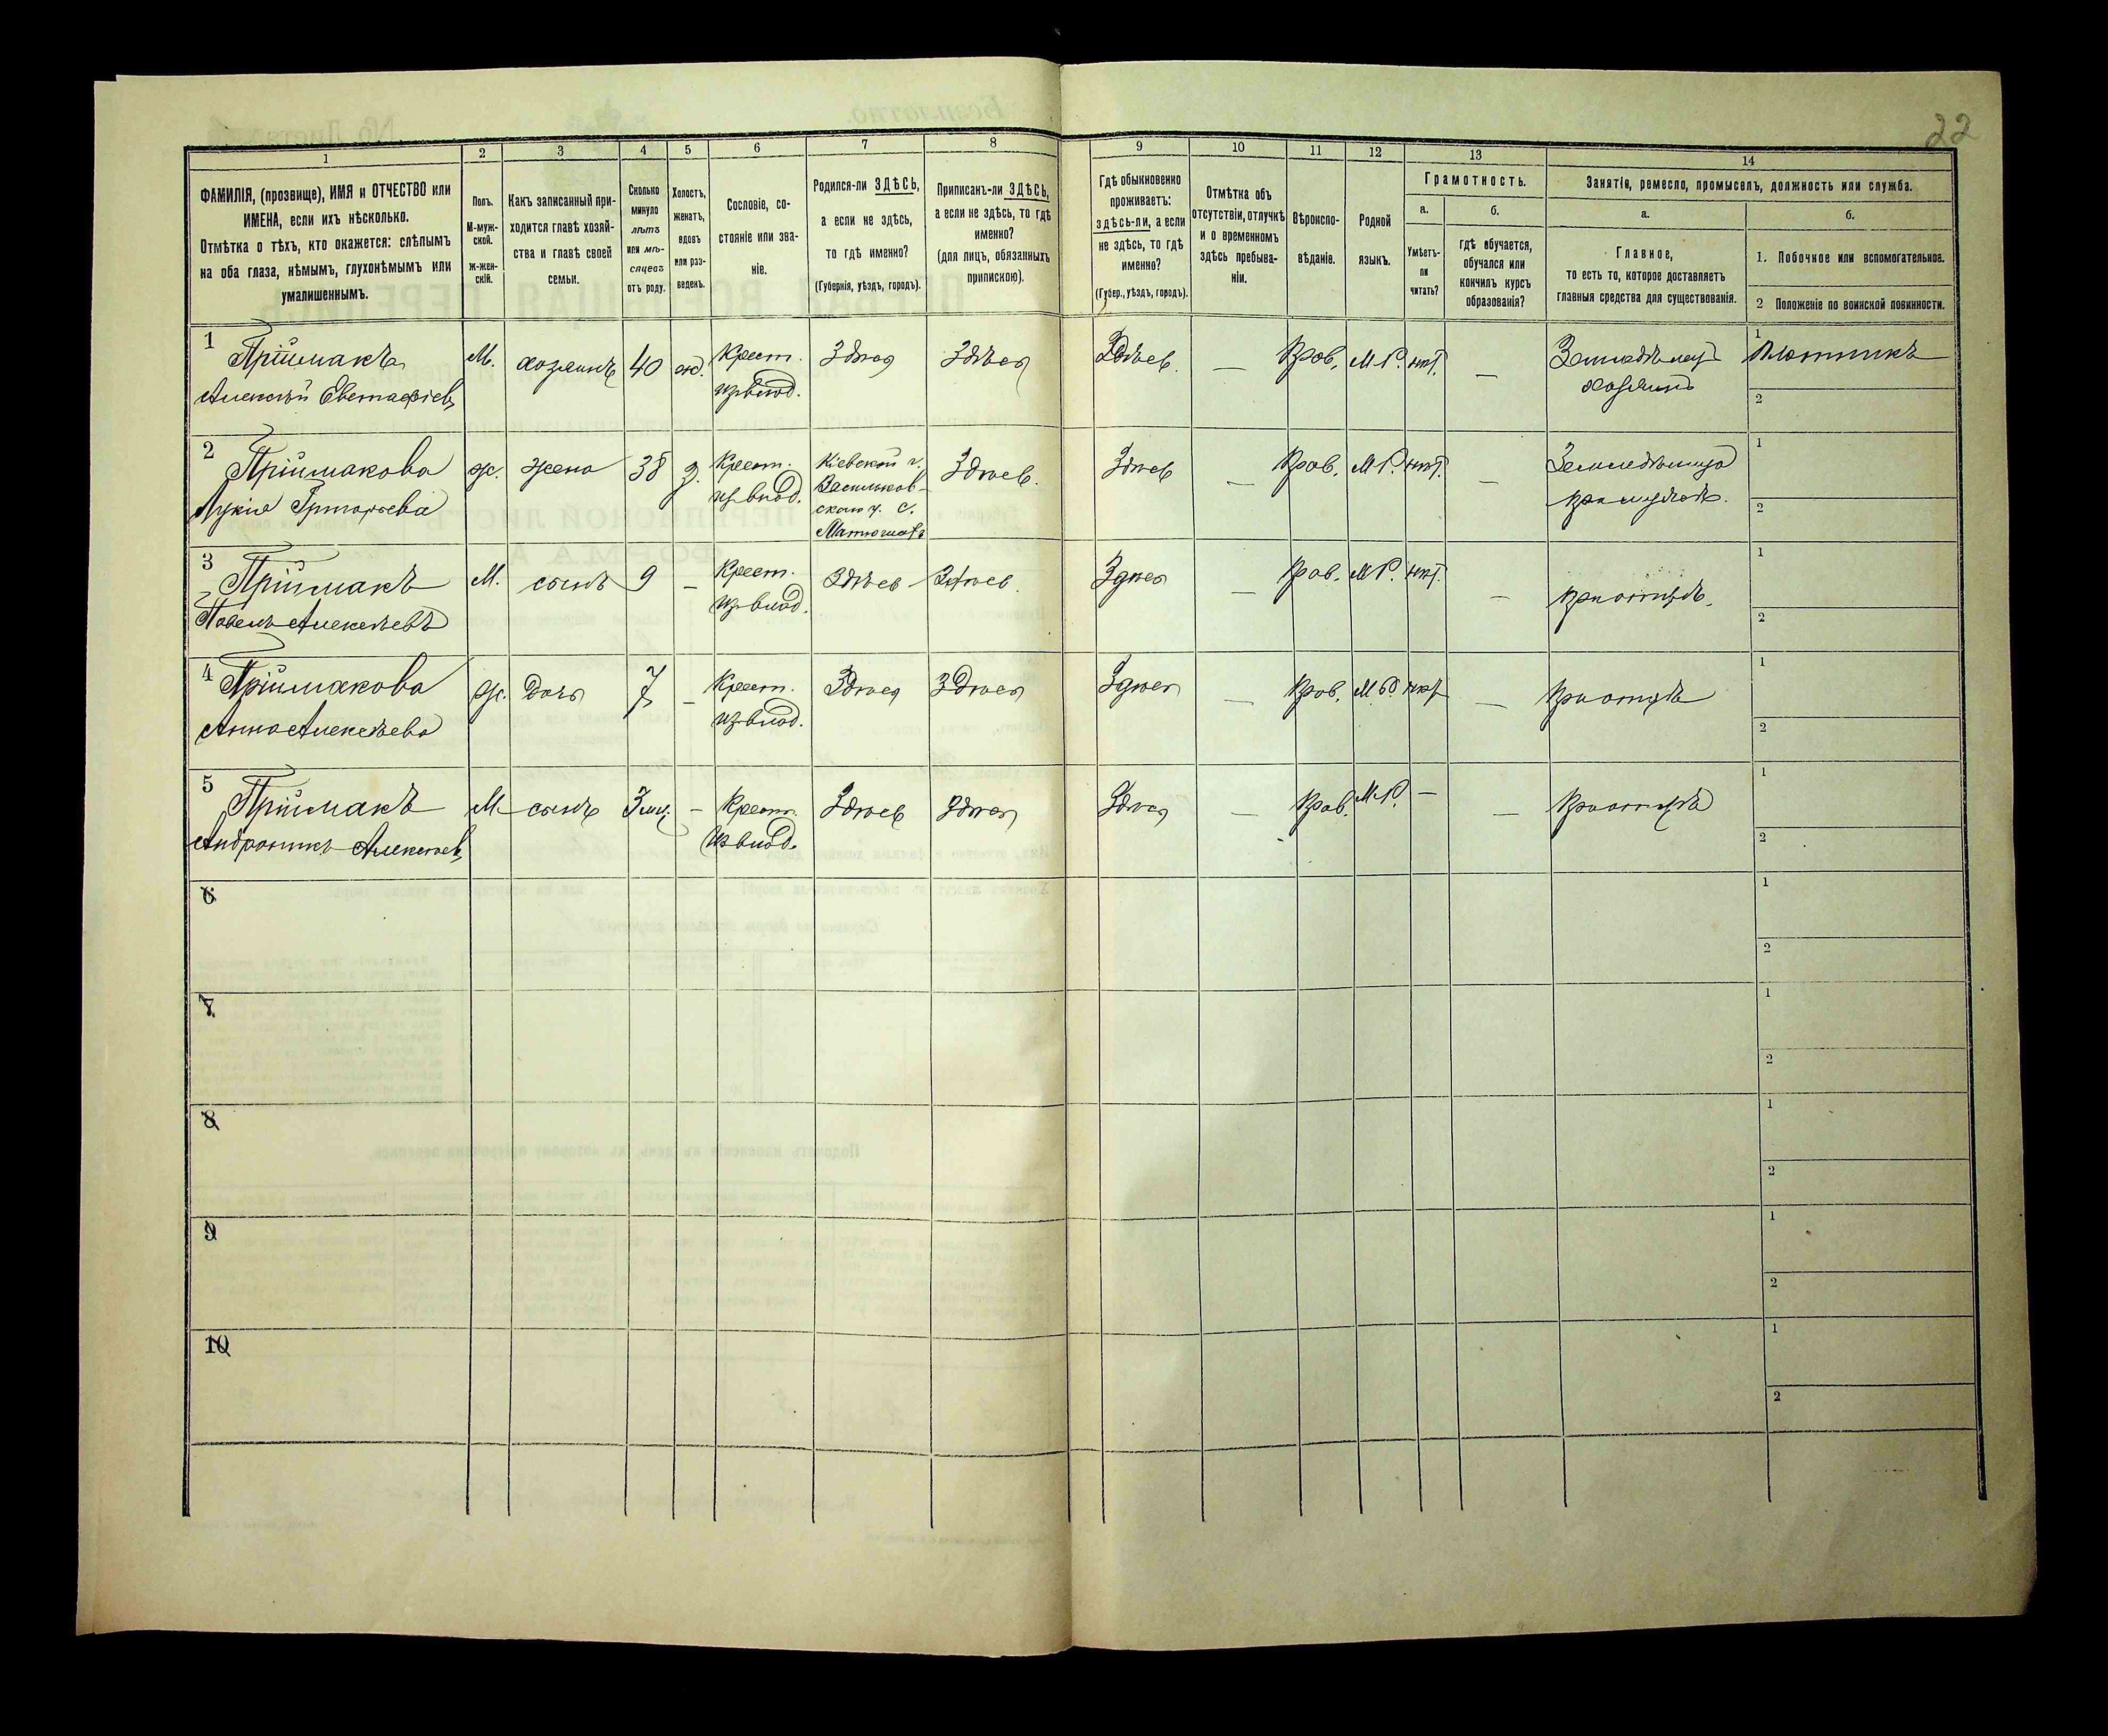 22
1 2 3 4 5 6 7 8 9 10 11 12 13 14
ФАМИЛІЯ, (прозвище), ИМЯ и ОТЧЕСТВО или
ИМЕНА, если ихъ нѣсколько.
Отмѣтка о тѣхъ, кто окажется: слѣпымъ
на оба глаза, нѣмымъ, глухонѣмымъ или
умалишеннымъ.
Полъ.
М-муж-
ской.
ж-жен-
скій.
Какъ записанный при-
ходится главѣ хозяй-
ства и главѣ своей
семьи.
Сколько
минуло
лѣтъ
или мѣ-
сяцевъ
отъ роду.
Холостъ,
женатъ,
вдовъ
или раз-
веденъ.
Сословіе, со-
стояніе или зва-
ніе.
Родился-ли ЗДѢСЬ,
а если не здѣсь,
то гдѣ именно?
(Губернія, уѣздъ, городъ).
Приписанъ-ли ЗДѢСЬ,
а если не здѣсь, то гдѣ
именно?
(для лицъ, обязанныхъ
припискою).
Гдѣ обыкновенно
проживаетъ:
здѣсь-ли, а если
не здѣсь, то гдѣ
именно?
(Губер., уѣздъ, городъ).
Отмѣтка объ
отсутствіи, отлучкѣ
и о временномъ
здѣсь пребыва-
ніи.
Вѣроиспо-
вѣданіе.
Родной
языкъ.
Грамотность.
а.
Умѣетъ-
ли
читать?
б.
гдѣ обучается,
обучался или
кончилъ курсъ
образованія?
Занятіе, ремесло, промыселъ, должность или служба.
а.
Главное,
то есть то, которое доставляетъ
главныя средства для существованія.
б.
1. Побочное или вспомогательное.
2 Положеніе по воинской повинности.
1 Пріймакъ М. хозяинъ 40 ж. Крест. Здѣсь Здѣсь Здѣсь — Прав. М.Р. нѣт. — 1 Плотникъ
Алексѣй Евстафіевъ из влад. хозяинъ 2
2 Пріймакова ж. жена 38 з. Крест. Кіевской г. Здѣсь. Здѣсь — Прав. М.Р. нѣт. — 1
Лукія Григорьева из влад. Васильков-
скаго у. с. при мужѣ. 2
3 Пріймакъ М. сынъ 9 — Крест. Здѣсь Здѣсь Здѣсь — Прав. М.Р. нѣт. — при отцѣ. 1
Павелъ Алексѣевъ из влад. 2
4 Пріймакова ж. Дочь 7 — Крест. Здѣсь Здѣсь Здѣсь — Прав. М.Р. нѣт — При отцѣ 1
Анна Алексѣева из влад. 2
5 Пріймакъ М сынъ 3 мц. — Крест. Здѣсь Здѣсь Здѣсь — Прав. М.Р. — — При отцѣ 1
Андроникъ Алексѣевъ из влад. 2
6 1
2
7 1
2
8 1
2
9 1
2
10 1
2